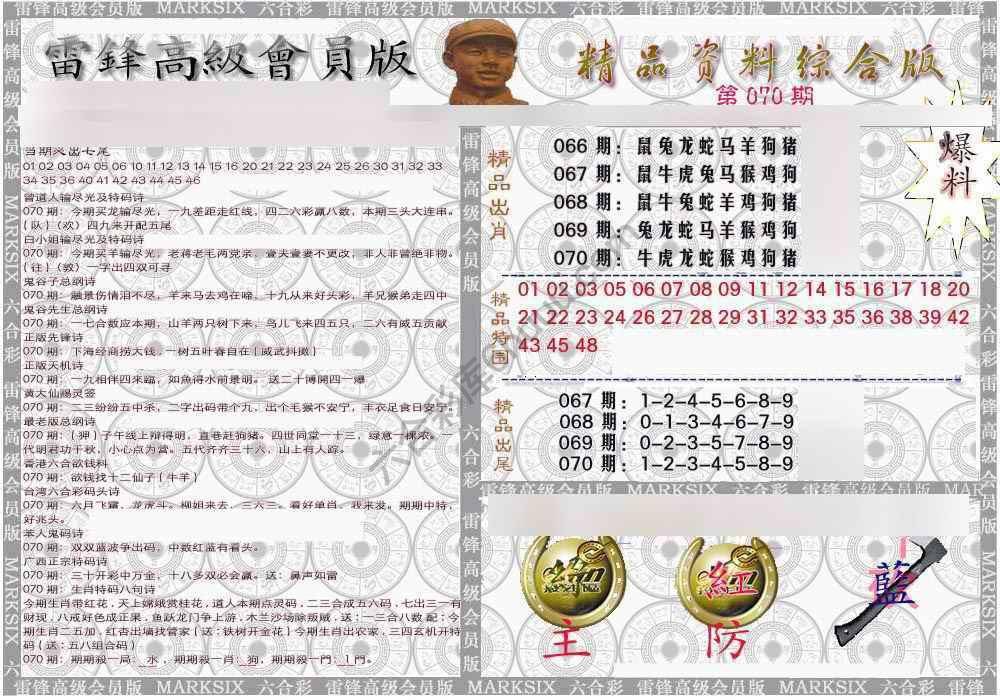 雷锋高级会员版 MARKSIX 六合彩 雷锋高级会员版 MARKSIX 六合彩 雷锋高级会员版
雷鋒高級會員版
精品资料综合版
第 070 期
爆料
01 02 03 04 05 06 10 11 12 13 14 15 16 20 21 22 23 24 25 26 30 31 32 33
34 35 36 40 41 42 43 44 45 46
曾道人输尽光及特码诗
070 期：今期买龙输尽光，一九差距走红线，四二六彩赢八数，本期三头大连串。
{队}(欢）四九来开配五尾
白小姐输尽光及特码诗
070 期：今期买羊输尽光，老蒋老毛两党亲，壹夫壹妻不更改，非人非曾绝非物。
{往}(敦）一字出四双可寻
鬼谷子总纲诗
070 期：融景伤情泪不尽，羊来马去鸡在啼，十九从来好头彩，羊兄猴弟走四中
鬼谷先生总纲诗
070 期：一七合数应本期，山羊两只树下来，鸟儿飞来四五只，二六有威五贡献
正版先锋诗
070 期：下海经商捞大钱，一树五叶春自在{威武抖擞}
正版天机诗
070 期：一九相伴四來臨，如魚得水前景明。送二十博開四一爆
黄大仙赐灵签
070 期：二三纷纷五中杀，二字出码带个九，出个毛猴不安宁，丰衣足食日安宁。
最老版总纲诗
070 期：{狎}子午线上辩得明，直巷赶狗猪。四世同堂一十三，绿意一棵浓。一
代明君功千秋，小心点为當。五代齐齐三十六，山上有人踪。
香港六合欲钱料
070 期：欲钱找十二仙子{牛羊}
台湾六合彩码头诗
070 期：六月飞霜，龙虎斗。柳姐来去，三六三。看好单肖。我来发。期期中特，
好兆头。
苯人鬼码诗
070 期：双双蓝波争出码，中数红蓝有看头。
广西正宗特码诗
070 期：三十开彩中万金，十八多双必会赢。送：鼻声如雷
070 期：生肖特码八句诗
今期生肖带红花，天上嫦娥赏桂花，道人本期点灵码，二三合成五六码，七出三一有
财现，八戒好色成正果，鱼跃龙门争上游，木兰沙场除叛贼，送：一三合八数 配：今
期生肖二五加，红杏出墙找管家{送：铁树开金花}今期生肖出农家，三四玄机开特
码{送：五八组合码}
070 期：期期殺一局：水，期期殺一肖：狗，期期殺一門：1 門。
精品出肖
066 期：鼠兔龙蛇马羊狗猪
067 期：鼠牛虎兔马猴鸡狗
068 期：鼠牛兔蛇羊鸡狗猪
069 期：兔龙蛇马羊猴鸡狗
070 期：牛虎龙蛇猴鸡狗猪
精品特围
01 02 03 05 06 07 08 09 11 12 14 15 16 17 18 20
21 22 23 24 26 27 28 29 31 32 33 35 36 38 39 42
43 45 48
精品出尾
067 期：1-2-4-5-6-8-9
068 期：0-1-3-4-6-7-9
069 期：0-2-3-5-7-8-9
070 期：1-2-3-4-5-8-9
雷锋高级会员版 MARKSIX 六合彩 雷锋高级会员版
紅
藍
主
防
雷锋高级会员版 MARKSIX 六合彩 雷锋高级会员版 MARKSIX 六合彩 雷锋高级会员版